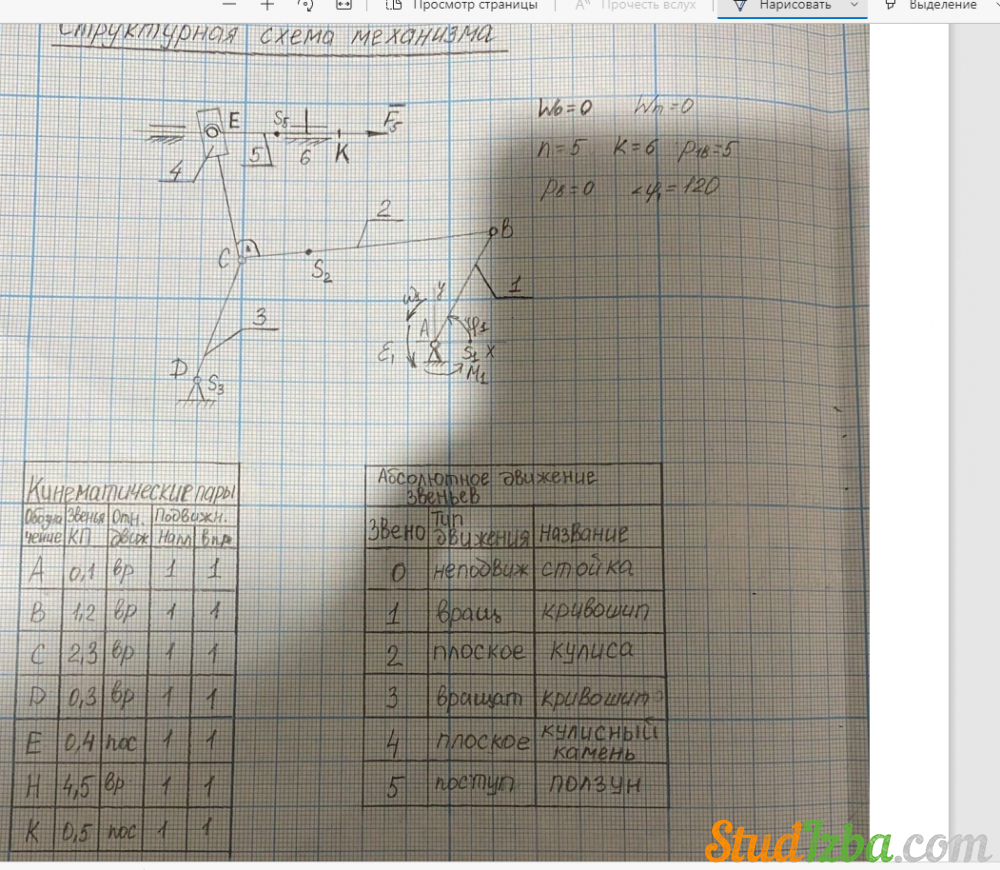 Просмотр страницы
Прочесть вслух
Нарисовать
Выделение
Структурная схема механизма
E S₅ F₅
4 5 6 K
W₀=0 Wп=0
n=5 K=6 P₁в=5
Pв=0 ∠φ₁=120
2
B
C S₂
1
3
y
A φ₁
ε₁ S₁ x
M₁
D S₃
Кинематические пары
Обозначение Звенья КП Отн. движ Подвижн.
A 0,1 вр 1 1
B 1,2 вр 1 1
C 2,3 вр 1 1
D 0,3 вр 1 1
E 0,4 пос 1 1
H 4,5 вр 1 1
K 0,5 пос 1 1
Абсолютное движение
звеньев
Звено Тип движения Название
0 неподвиж стойка
1 вращ кривошип
2 плоское кулиса
3 вращат кривошип
4 плоское кулисный камень
5 поступ ползун
StudIzba.com